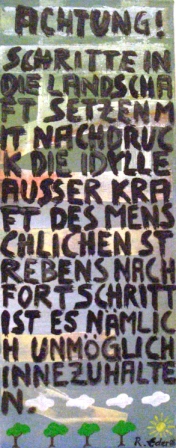 ACHTUNG!
SCHRITTE IN
DIE LANDSCHA
FT SETZEN M
IT NACHDRUC
K DIE IDYLLE
AUSSER KRA
FT DES MENS
CHLICHEN ST
REBENS NACH
FORTSCHRITT
IST ES NÄMLIC
H UNMÖGLICH
INNEZUHALTE
N.
R. Ederer